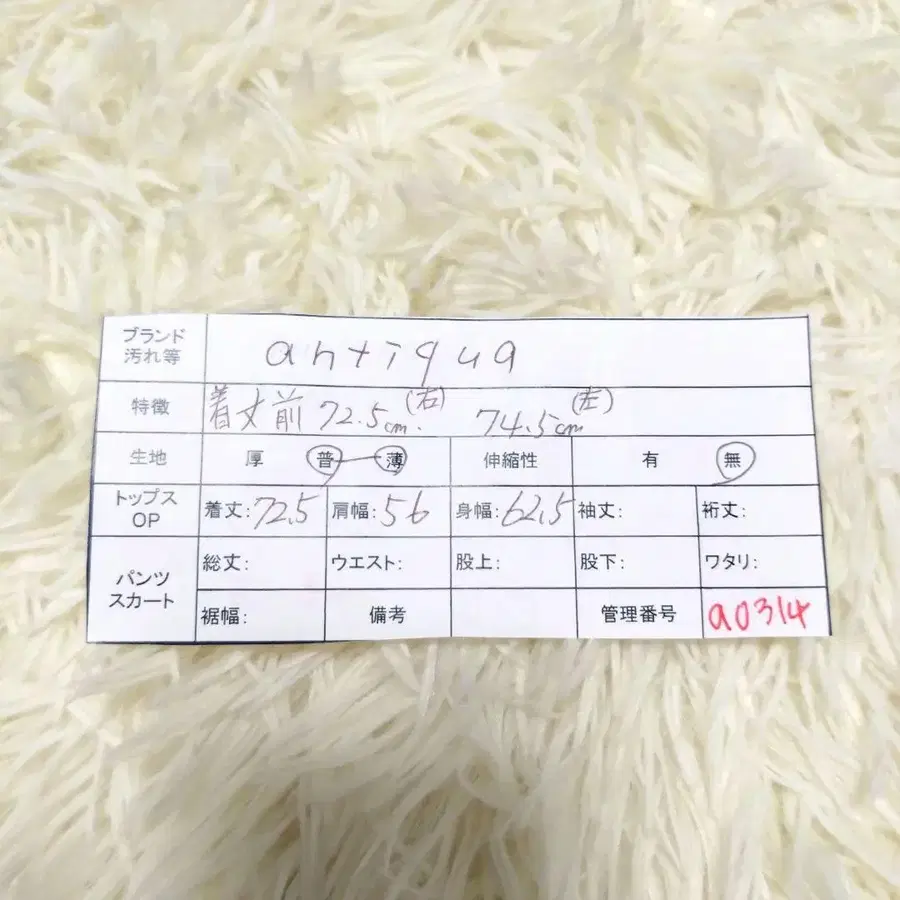 ブランド
汚れ等 antiqua
特徴 着丈前 72.5cm. (右) 74.5cm (左)
生地 厚 普 薄 伸縮性 有 無
トップス
OP 着丈:72.5 肩幅:56 身幅:62.5 袖丈: 裄丈:
パンツ
スカート 総丈: ウエスト: 股上: 股下: ワタリ:
裾幅: 備考 管理番号 a0314